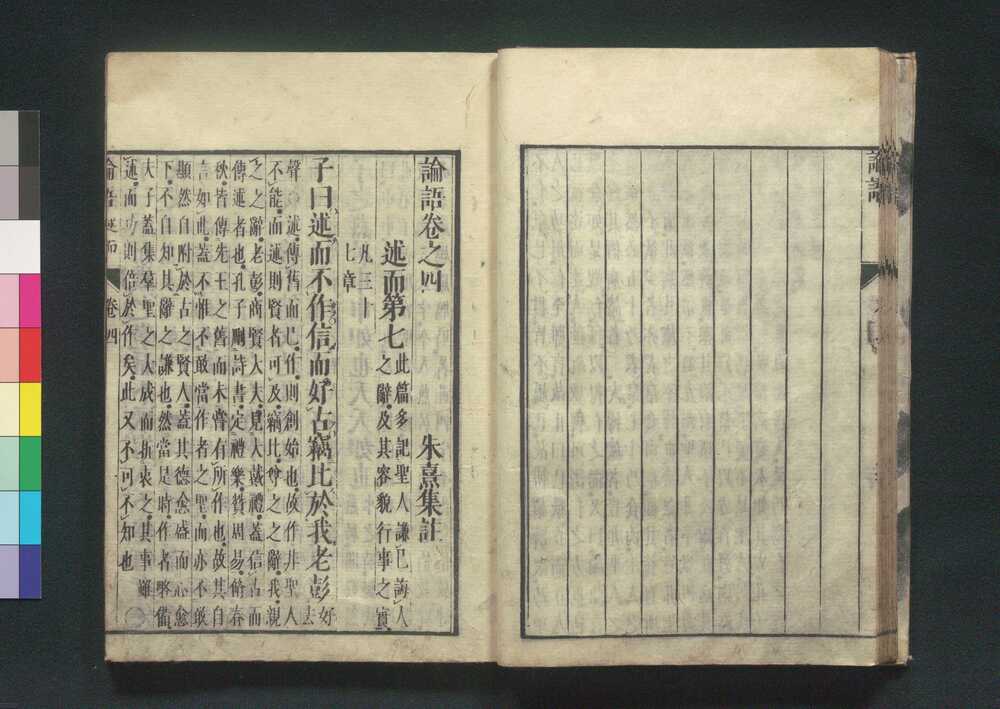 論語
論語卷之四　朱熹集註
述而第七
此篇多記聖人謙己誨人
之辭及其容貌行事之實
凡三十
七章
子曰述而不作信而好古竊比於我老彭
好去
聲○述傳舊而已作則創始也故作非聖人
不能而述則賢者可及竊比尊之之辭我親
之之辭老彭商賢大夫見大戴禮蓋信古而
傳述者也孔子刪詩書定禮樂贊周易脩春
秋皆傳先王之舊而未嘗有所作也故其自
言如此蓋不惟不敢當作者之聖而亦不敢
顯然自附於古之賢人蓋其德愈盛而心愈
下不自知其辭之謙也然當是時作者畧備
夫子蓋集羣聖之大成而折衷之其事雖
述而功則倍於作矣此又不可不知也
論語　述而　卷四